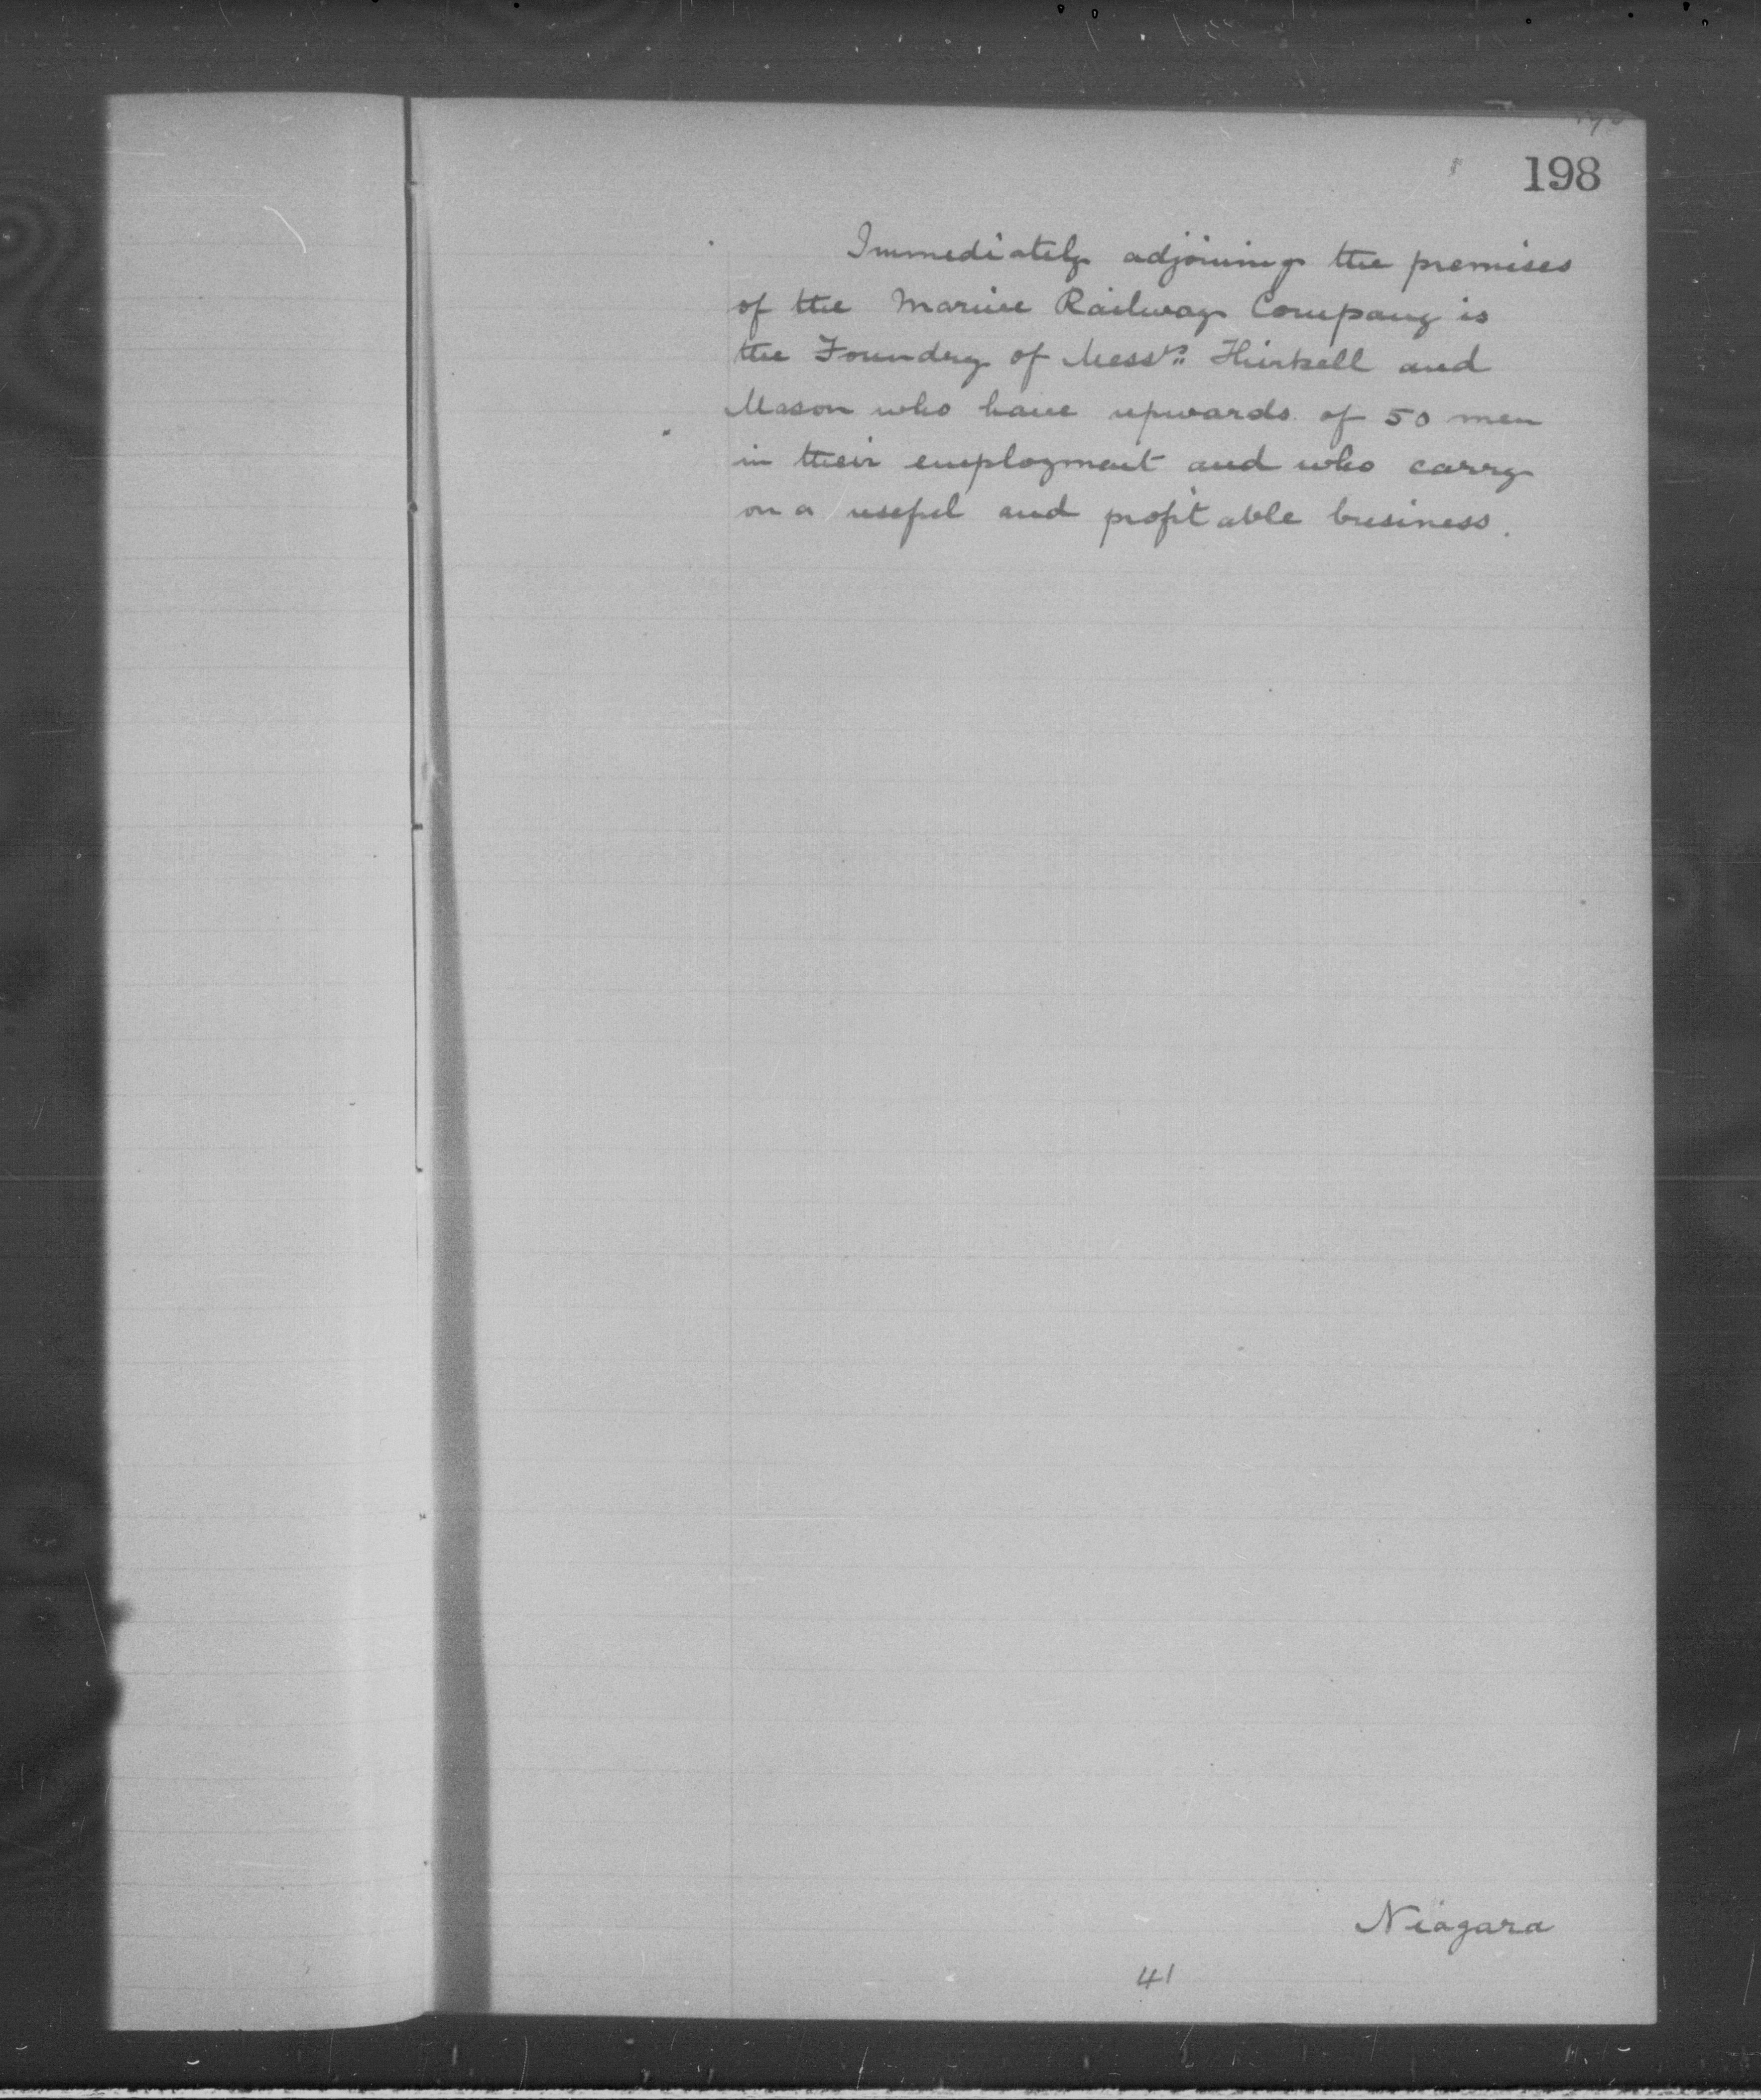 198
Immediately adjoining the premises
of the Marine Railway Company is
the Foundry of Messrs. and
Mason who have upwards of 50 men
in their employment and who carry
on a useful and profitable business.
Niagara
41